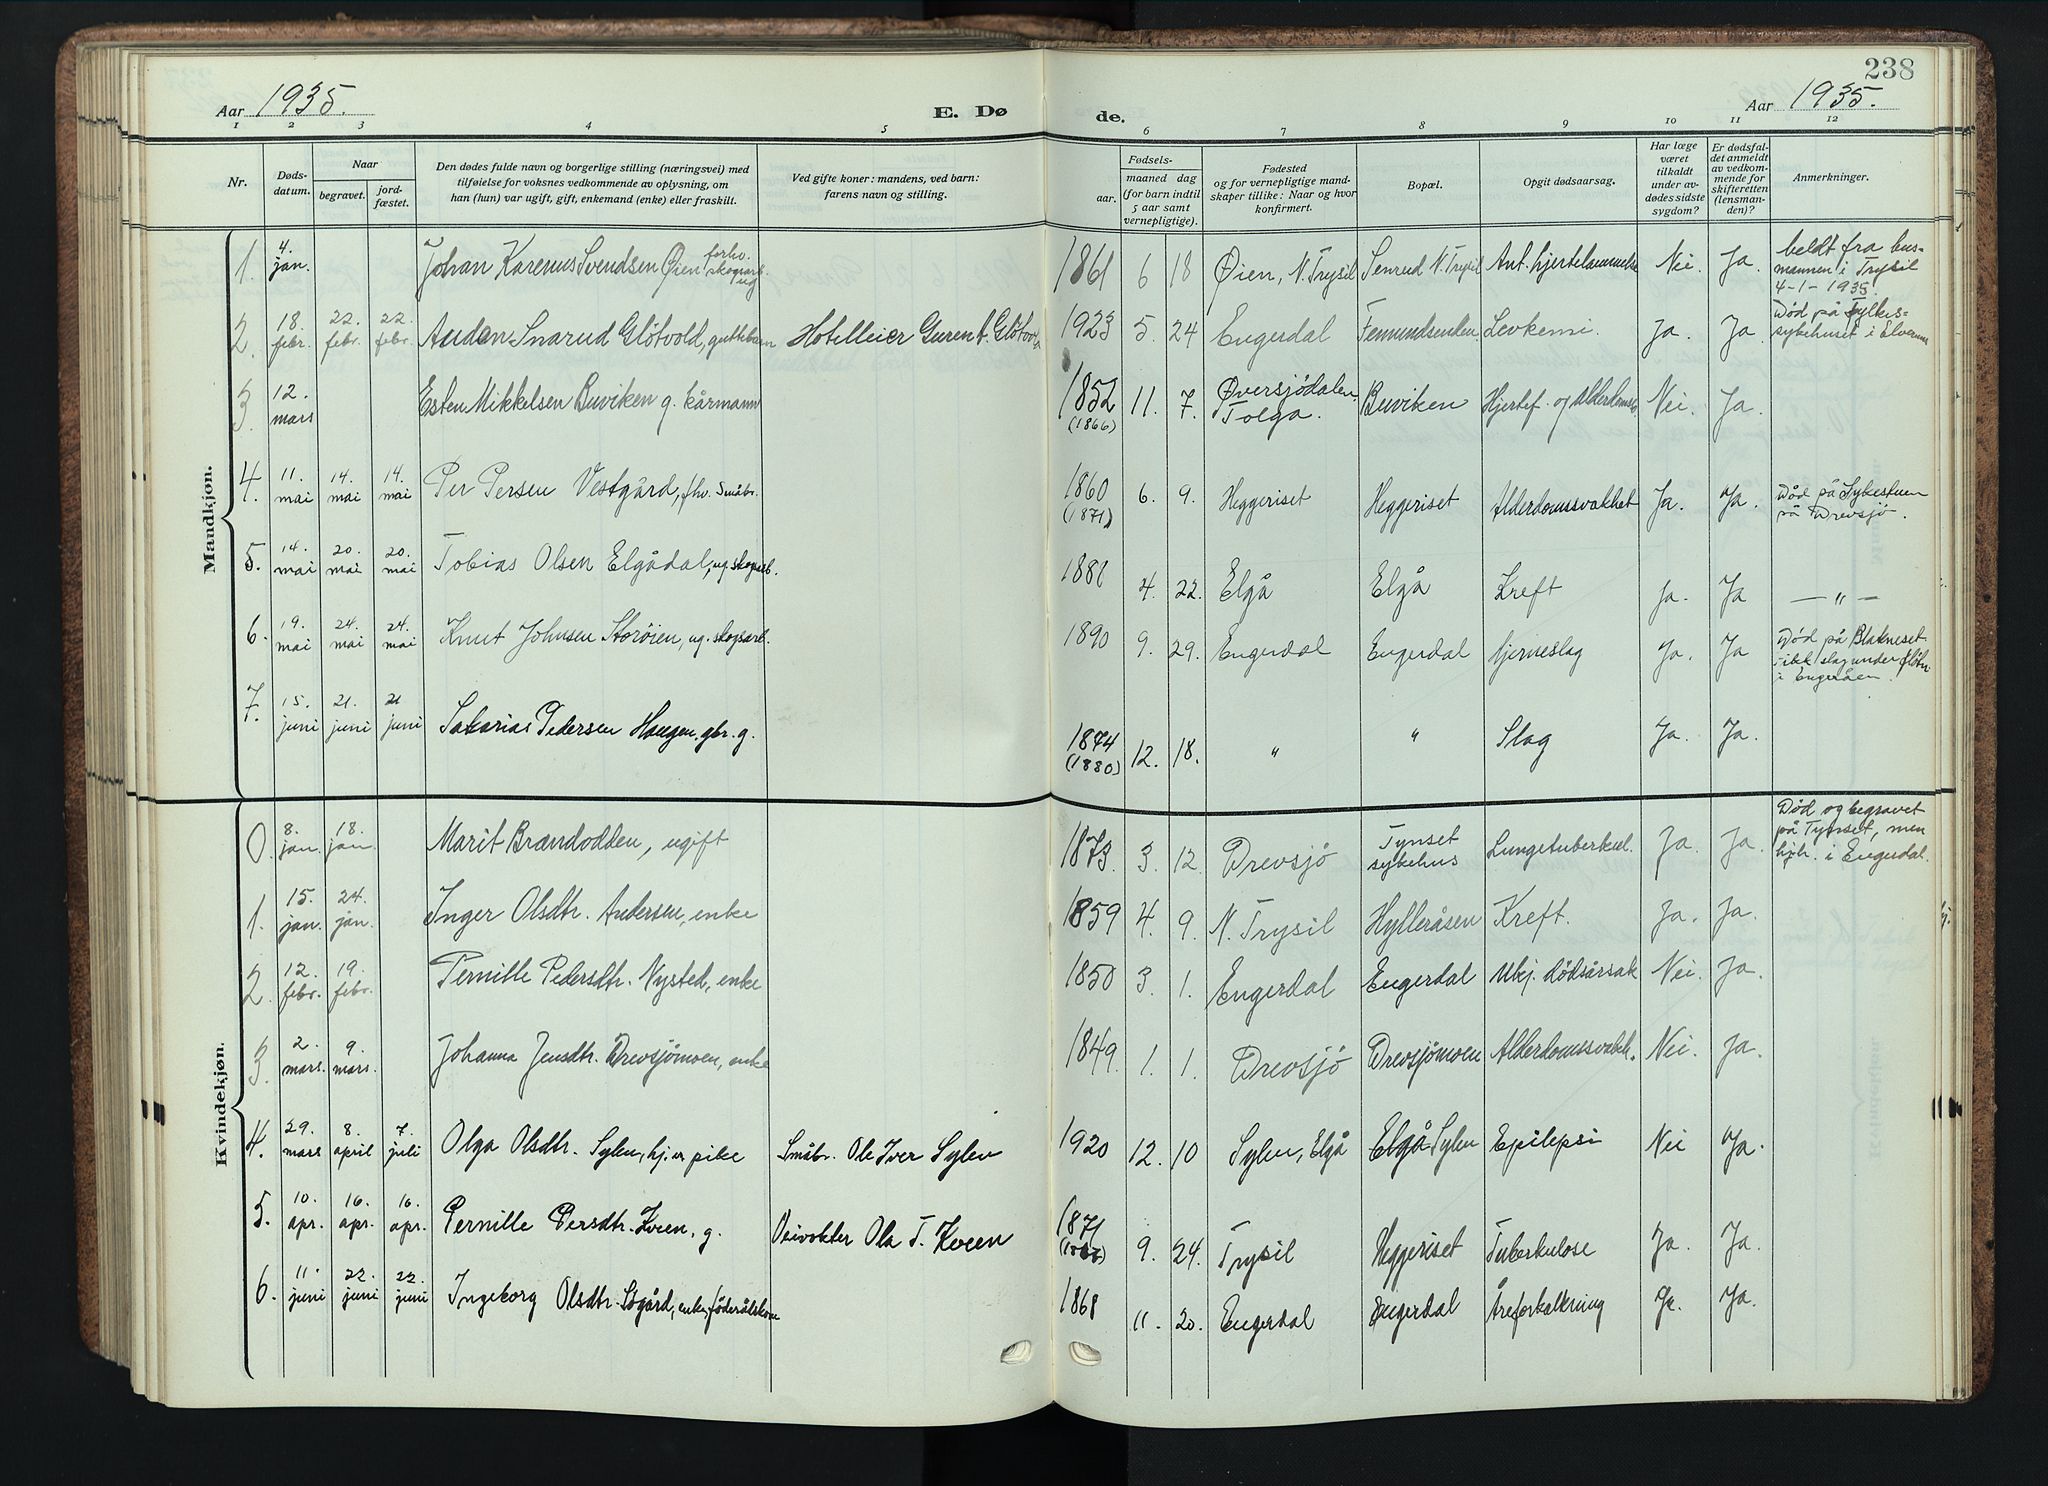 238
Aar 1935.
E. Døde.
Aar 1935.
1 2 3 4 5 6 7 8 9 10 11 12
Nr.
Døds-
datum.
Naar
begravet.
jord-
fæstet.
Den dødes fulde navn og borgerlige stilling (næringsvei) med
tilføielse for voksnes vedkommende av oplysning, om
han (hun) var ugift, gift, enkemand (enke) eller fraskilt.
Ved gifte koner: mandens, ved barn:
farens navn og stilling.
Fødsels-
aar.
maaned dag
(for barn indtil
5 aar samt
vernepligtige).
Fødested
og for vernepligtige mand-
skaper tillike: Naar og hvor
konfirmert.
Bopæl.
Opgit dødsaarsag.
Har læge
været
tilkaldt
under av-
dødes sidste
sygdom?
Er dødsfal-
det anmeldt
av vedkom-
mende for
skifteretten
(lensman-
den)?
Anmerkninger.
Mandkjøn.
1. 4. jan. Johan Karenus Svendsen Øien forhv. skogsarb. ug 1861 6 18 Øien, N. Trysil Senrud N. Trysil Ant. hjertelammelse Nei. Ja.
meldt fra lens-
mannen i Trysil
4-1-1935.
2. 18. febr. 22. febr. 22. febr. Audan Snarud Glötvold, guttebarn Hotelleier Glötvold 1923 5. 24 Engerdal Femundsenden Levkemi. Ja. Ja.
Död på Fylkes-
sykehuset i Elverum
3. 12. mars Esten Mikkelsen Buviken g. kårmann 1852 (1866) 11. 7. Øversjödalen, Tolga. Buviken Hjertef. og Alderdomssv. Nei. Ja.
4. 11. mai 14. mai 14. mai Per Persen Vestgård, fhv. Småbr. 1860 (1871) 6. 9. Heggeriset Heggeriset Alderdomssvakhet Ja. Ja.
Död på Sykestuen
på Drevsjö.
5. 14. mai 20. mai 20. mai Tobias Olsen Elgådal, ug. skogsarb. 1881 4. 22. Elgå Elgå Kreft Ja. Ja — " —
6. 19. mai 24. mai 24. mai Knut Johnsen Storöien, ug. skogsarb. 1890 9. 29. Engerdal Engerdal Hjerneslag Ja. Ja
Död på Blakneset
fikk slag under flötn.
i Engeråen.
7. 15. juni 21. juni 21 juni Sakarias Pedersen Haugen. gbr. g. 1874 (1880) 12. 18. " " Slag Ja. Ja.
Kvindekjøn.
0. 8. jan. 18. jan Marit Brændodden, ugift 1873. 3. 12. Drevsjö Tynset sykehus Lungetuberkul. Ja. Ja.
Död og begravet
på Tynset, men
hjh. i Engerdal.
1. 15. jan. 24. jan. Inger Olsdtr. Andersen, enke 1859 4. 9. N. Trysil Hylleråsen Kreft. Ja. Ja.
2. 12. febr. 19. febr. Pernille Pedersdtr. Nysted, enke 1850 3. 1. Engerdal Engerdal Ukj. dödsårsak Nei. Ja.
3. 2. mars. 9. mars. Johanna Jensdtr. Drevsjömoen, enke 1849. 1. 1. Drevsjö Drevsjömoen Alderdomssvakh. Nei. Ja.
4. 29. mars 8. april 7. juli Olga Olsdtr. Sylen, hj.v. pike Småbr. Ole Iver Sylen 1920 12. 10 Sylen, Elgå Elgå Sylen Epilepsi Nei Ja.
5. 10. apr. 16. apr. 16. apr. Pernille Persdtr. Kveen, g. Veivokter Ola T. Kveen 1871 9. 24. Trysil Heggeriset Tuberkulose Ja. Ja.
6. 11. juni 22. juni 22. juni Ingeborg Olsdtr. Sögård, enke, föderådskone 1868 11. 20. Engerdal Engerdal Åreforkalkning Ja. Ja.